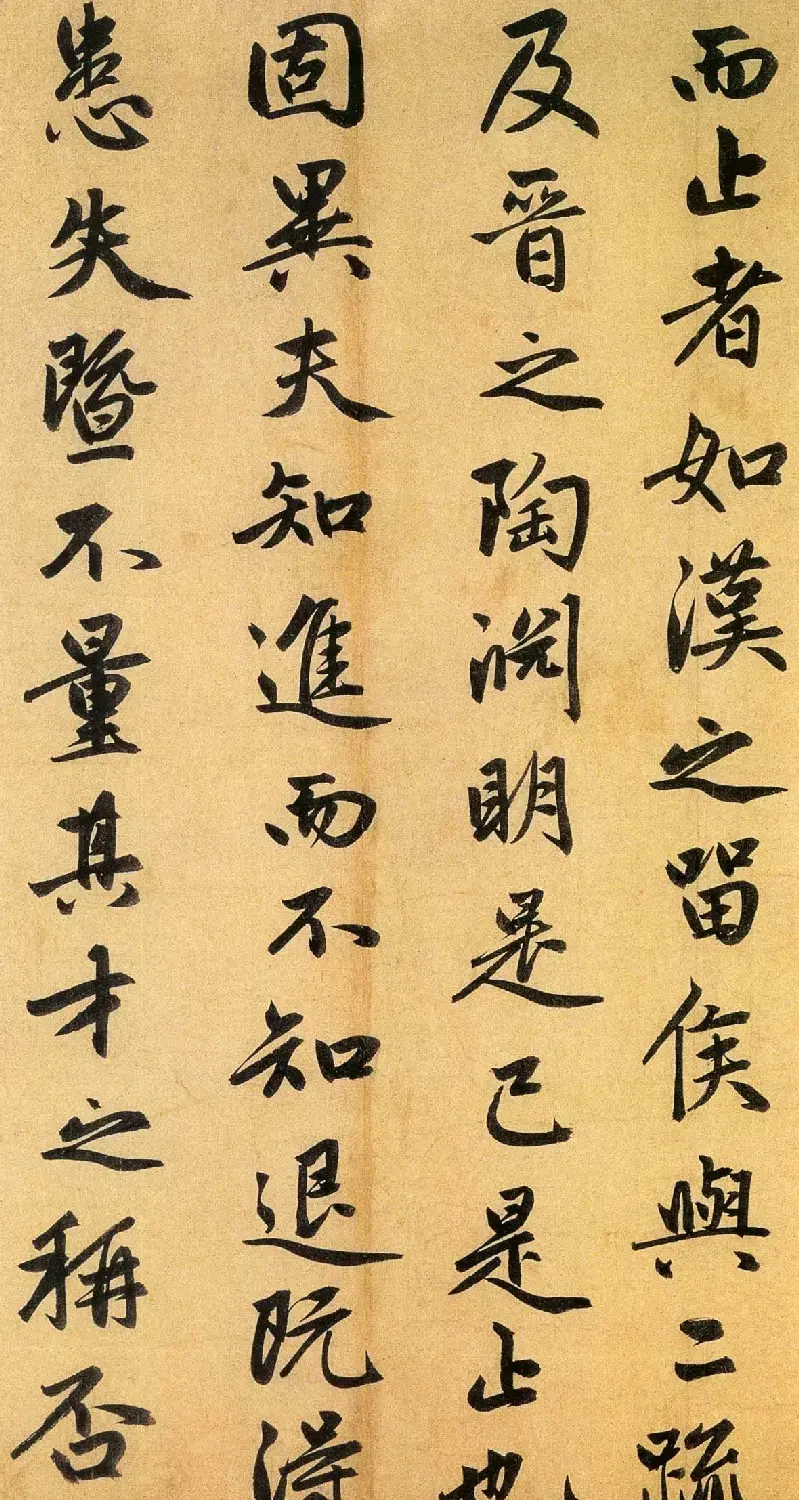 而止者如漢之留侯與二疏
及晋之陶渊明是已是止也
固異夫知進而不知退既得
患失暨不量其才之稱否